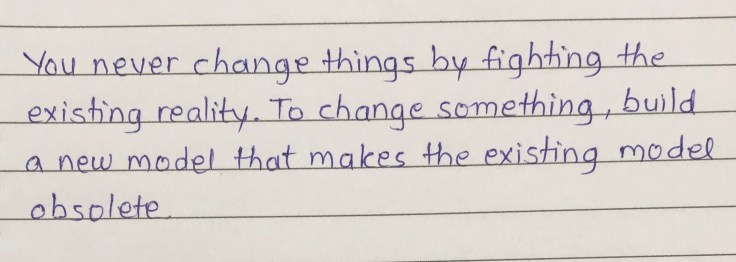 You never change things by fighting the
existing reality. To change something, build
a new model that makes the existing model
obsolete.